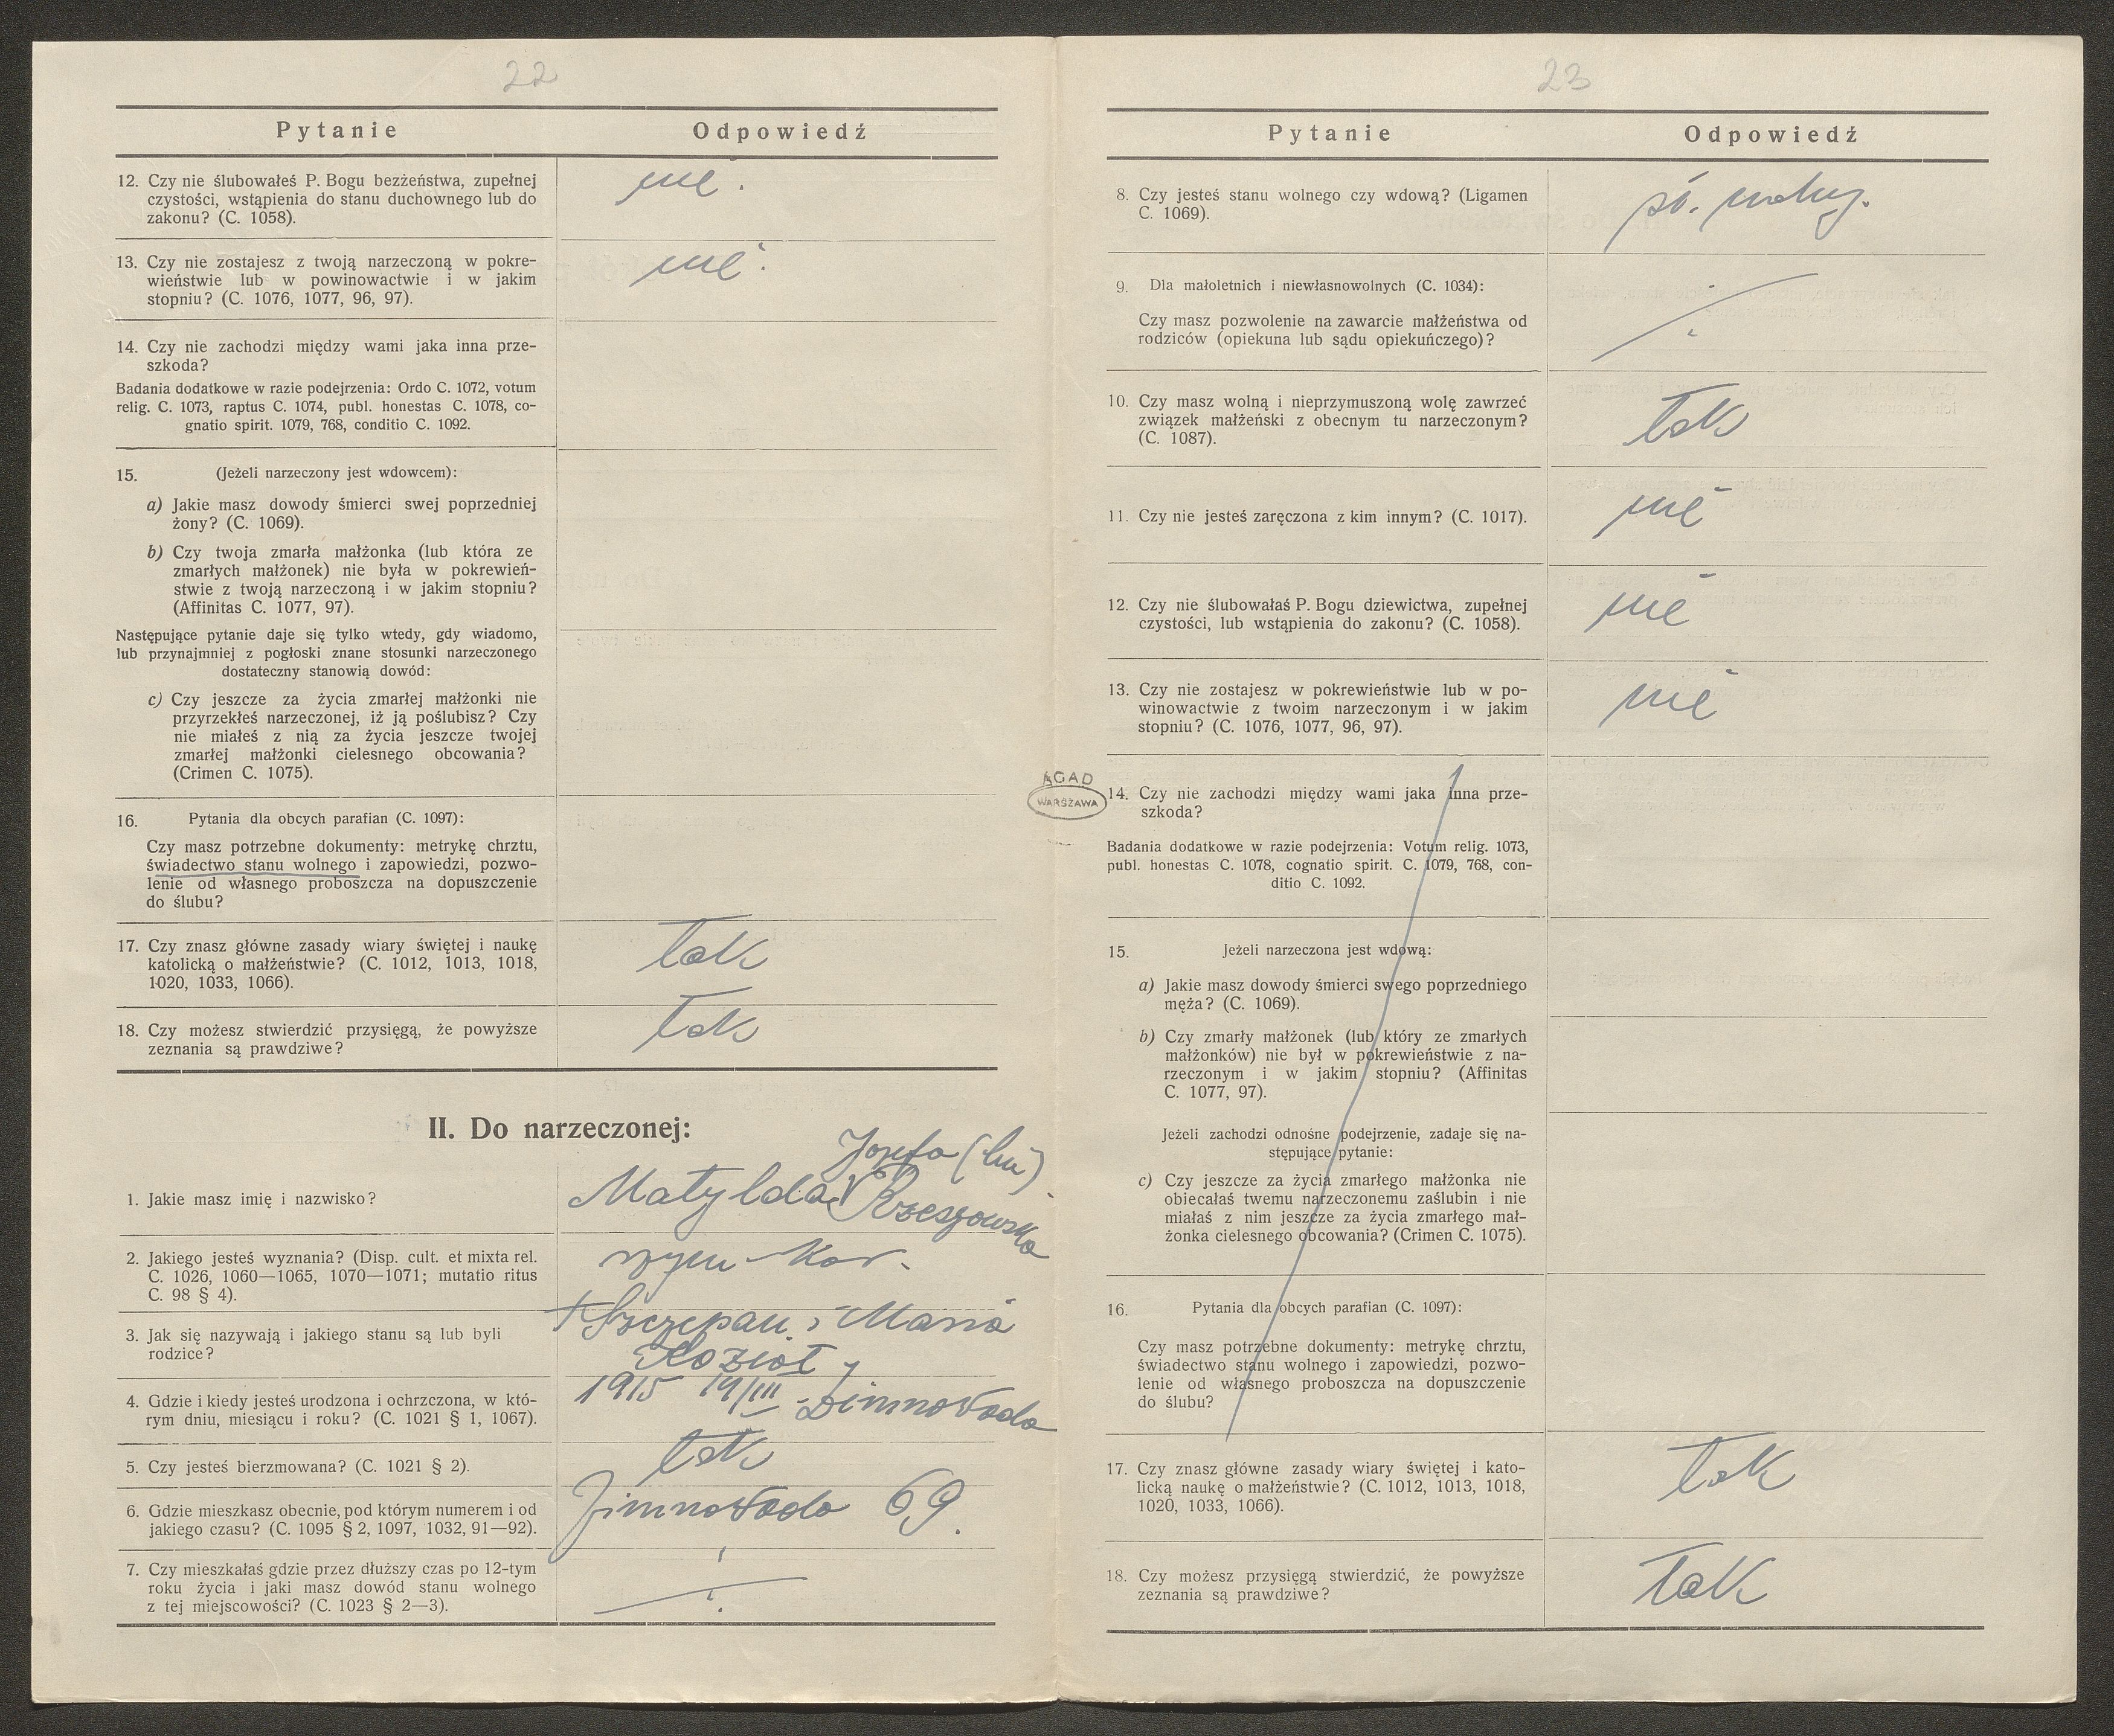 22
Pytanie Odpowiedź
12. Czy nie ślubowałeś P. Bogu bezżeństwa, zupełnej
czystości, wstąpienia do stanu duchownego lub do
zakonu? (C. 1058).
nie.
13. Czy nie zostajesz z twoją narzeczoną w pokre-
wieństwie lub w powinowactwie i w jakim
stopniu? (C. 1076, 1077, 96, 97).
nie.
14. Czy nie zachodzi między wami jaka inna prze-
szkoda?
Badania dodatkowe w razie podejrzenia: Ordo C. 1072, votum
relig. C. 1073, raptus C. 1074, publ. honestas C. 1078, co-
gnatio spirit. 1079, 768, conditio C. 1092.
15. (Jeżeli narzeczony jest wdowcem):
a) Jakie masz dowody śmierci swej poprzedniej
żony? (C. 1069).
b) Czy twoja zmarła małżonka (lub która ze
zmarłych małżonek) nie była w pokrewień-
stwie z twoją narzeczoną i w jakim stopniu?
(Affinitas C. 1077, 97).
Następujące pytanie daje się tylko wtedy, gdy wiadomo,
lub przynajmniej z pogłoski znane stosunki narzeczonego
dostateczny stanowią dowód:
c) Czy jeszcze za życia zmarłej małżonki nie
przyrzekłeś narzeczonej, iż ją poślubisz? Czy
nie miałeś z nią za życia jeszcze twojej
zmarłej małżonki cielesnego obcowania?
(Crimen C. 1075).
16. Pytania dla obcych parafian (C. 1097):
Czy masz potrzebne dokumenty: metrykę chrztu,
świadectwo stanu wolnego i zapowiedzi, pozwo-
lenie od własnego proboszcza na dopuszczenie
do ślubu?
17. Czy znasz główne zasady wiary świętej i naukę
katolicką o małżeństwie? (C. 1012, 1013, 1018,
1020, 1033, 1066).
tak
18. Czy możesz stwierdzić przysięgą, że powyższe
zeznania są prawdziwe?
tak
II. Do narzeczonej:
1. Jakie masz imię i nazwisko?
Józefa
Matylda Rzeszowska
2. Jakiego jesteś wyznania? (Disp. cult. et mixta rel.
C. 1026, 1060—1065, 1070—1071; mutatio ritus
C. 98 § 4).
rzym-kat.
3. Jak się nazywają i jakiego stanu są lub byli
rodzice?
+ Szczepan i Maria
Kozioł
4. Gdzie i kiedy jesteś urodzona i ochrzczona, w któ-
rym dniu, miesiącu i roku? (C. 1021 § 1, 1067).
1915 19/III Zimnowoda
5. Czy jesteś bierzmowana? (C. 1021 § 2).
tak
6. Gdzie mieszkasz obecnie, pod którym numerem i od
jakiego czasu? (C. 1095 § 2, 1097, 1032, 91—92).
Zimnowoda 69.
7. Czy mieszkałaś gdzie przez dłuższy czas po 12-tym
roku życia i jaki masz dowód stanu wolnego
z tej miejscowości? (C. 1023 § 2—3).
23
Pytanie Odpowiedź
8. Czy jesteś stanu wolnego czy wdową? (Ligamen
C. 1069).
9. Dla małoletnich i niewłasnowolnych (C. 1034):
Czy masz pozwolenie na zawarcie małżeństwa od
rodziców (opiekuna lub sądu opiekuńczego)?
10. Czy masz wolną i nieprzymuszoną wolę zawrzeć
związek małżeński z obecnym tu narzeczonym?
(C. 1087).
tak
11. Czy nie jesteś zaręczona z kim innym? (C. 1017).
nie
12. Czy nie ślubowałaś P. Bogu dziewictwa, zupełnej
czystości, lub wstąpienia do zakonu? (C. 1058).
nie
13. Czy nie zostajesz w pokrewieństwie lub w po-
winowactwie z twoim narzeczonym i w jakim
stopniu? (C. 1076, 1077, 96, 97).
nie
AGAD
WARSZAWA
14. Czy nie zachodzi między wami jaka inna prze-
szkoda?
Badania dodatkowe w razie podejrzenia: Votum relig. 1073,
publ. honestas C. 1078, cognatio spirit. C. 1079, 768, con-
ditio C. 1092.
15. Jeżeli narzeczona jest wdową:
a) Jakie masz dowody śmierci swego poprzedniego
męża? (C. 1069).
b) Czy zmarły małżonek (lub który ze zmarłych
małżonków) nie był w pokrewieństwie z na-
rzeczonym i w jakim stopniu? (Affinitas
C. 1077, 97).
Jeżeli zachodzi odnośne podejrzenie, zadaje się na-
stępujące pytanie:
c) Czy jeszcze za życia zmarłego małżonka nie
obiecałaś twemu narzeczonemu zaślubin i nie
miałaś z nim jeszcze za życia zmarłego mał-
żonka cielesnego obcowania? (Crimen C. 1075).
16. Pytania dla obcych parafian (C. 1097):
Czy masz potrzebne dokumenty: metrykę chrztu,
świadectwo stanu wolnego i zapowiedzi, pozwo-
lenie od własnego proboszcza na dopuszczenie
do ślubu?
17. Czy znasz główne zasady wiary świętej i kato-
licką naukę o małżeństwie? (C. 1012, 1013, 1018,
1020, 1033, 1066).
tak
18. Czy możesz przysięgą stwierdzić, że powyższe
zeznania są prawdziwe?
tak